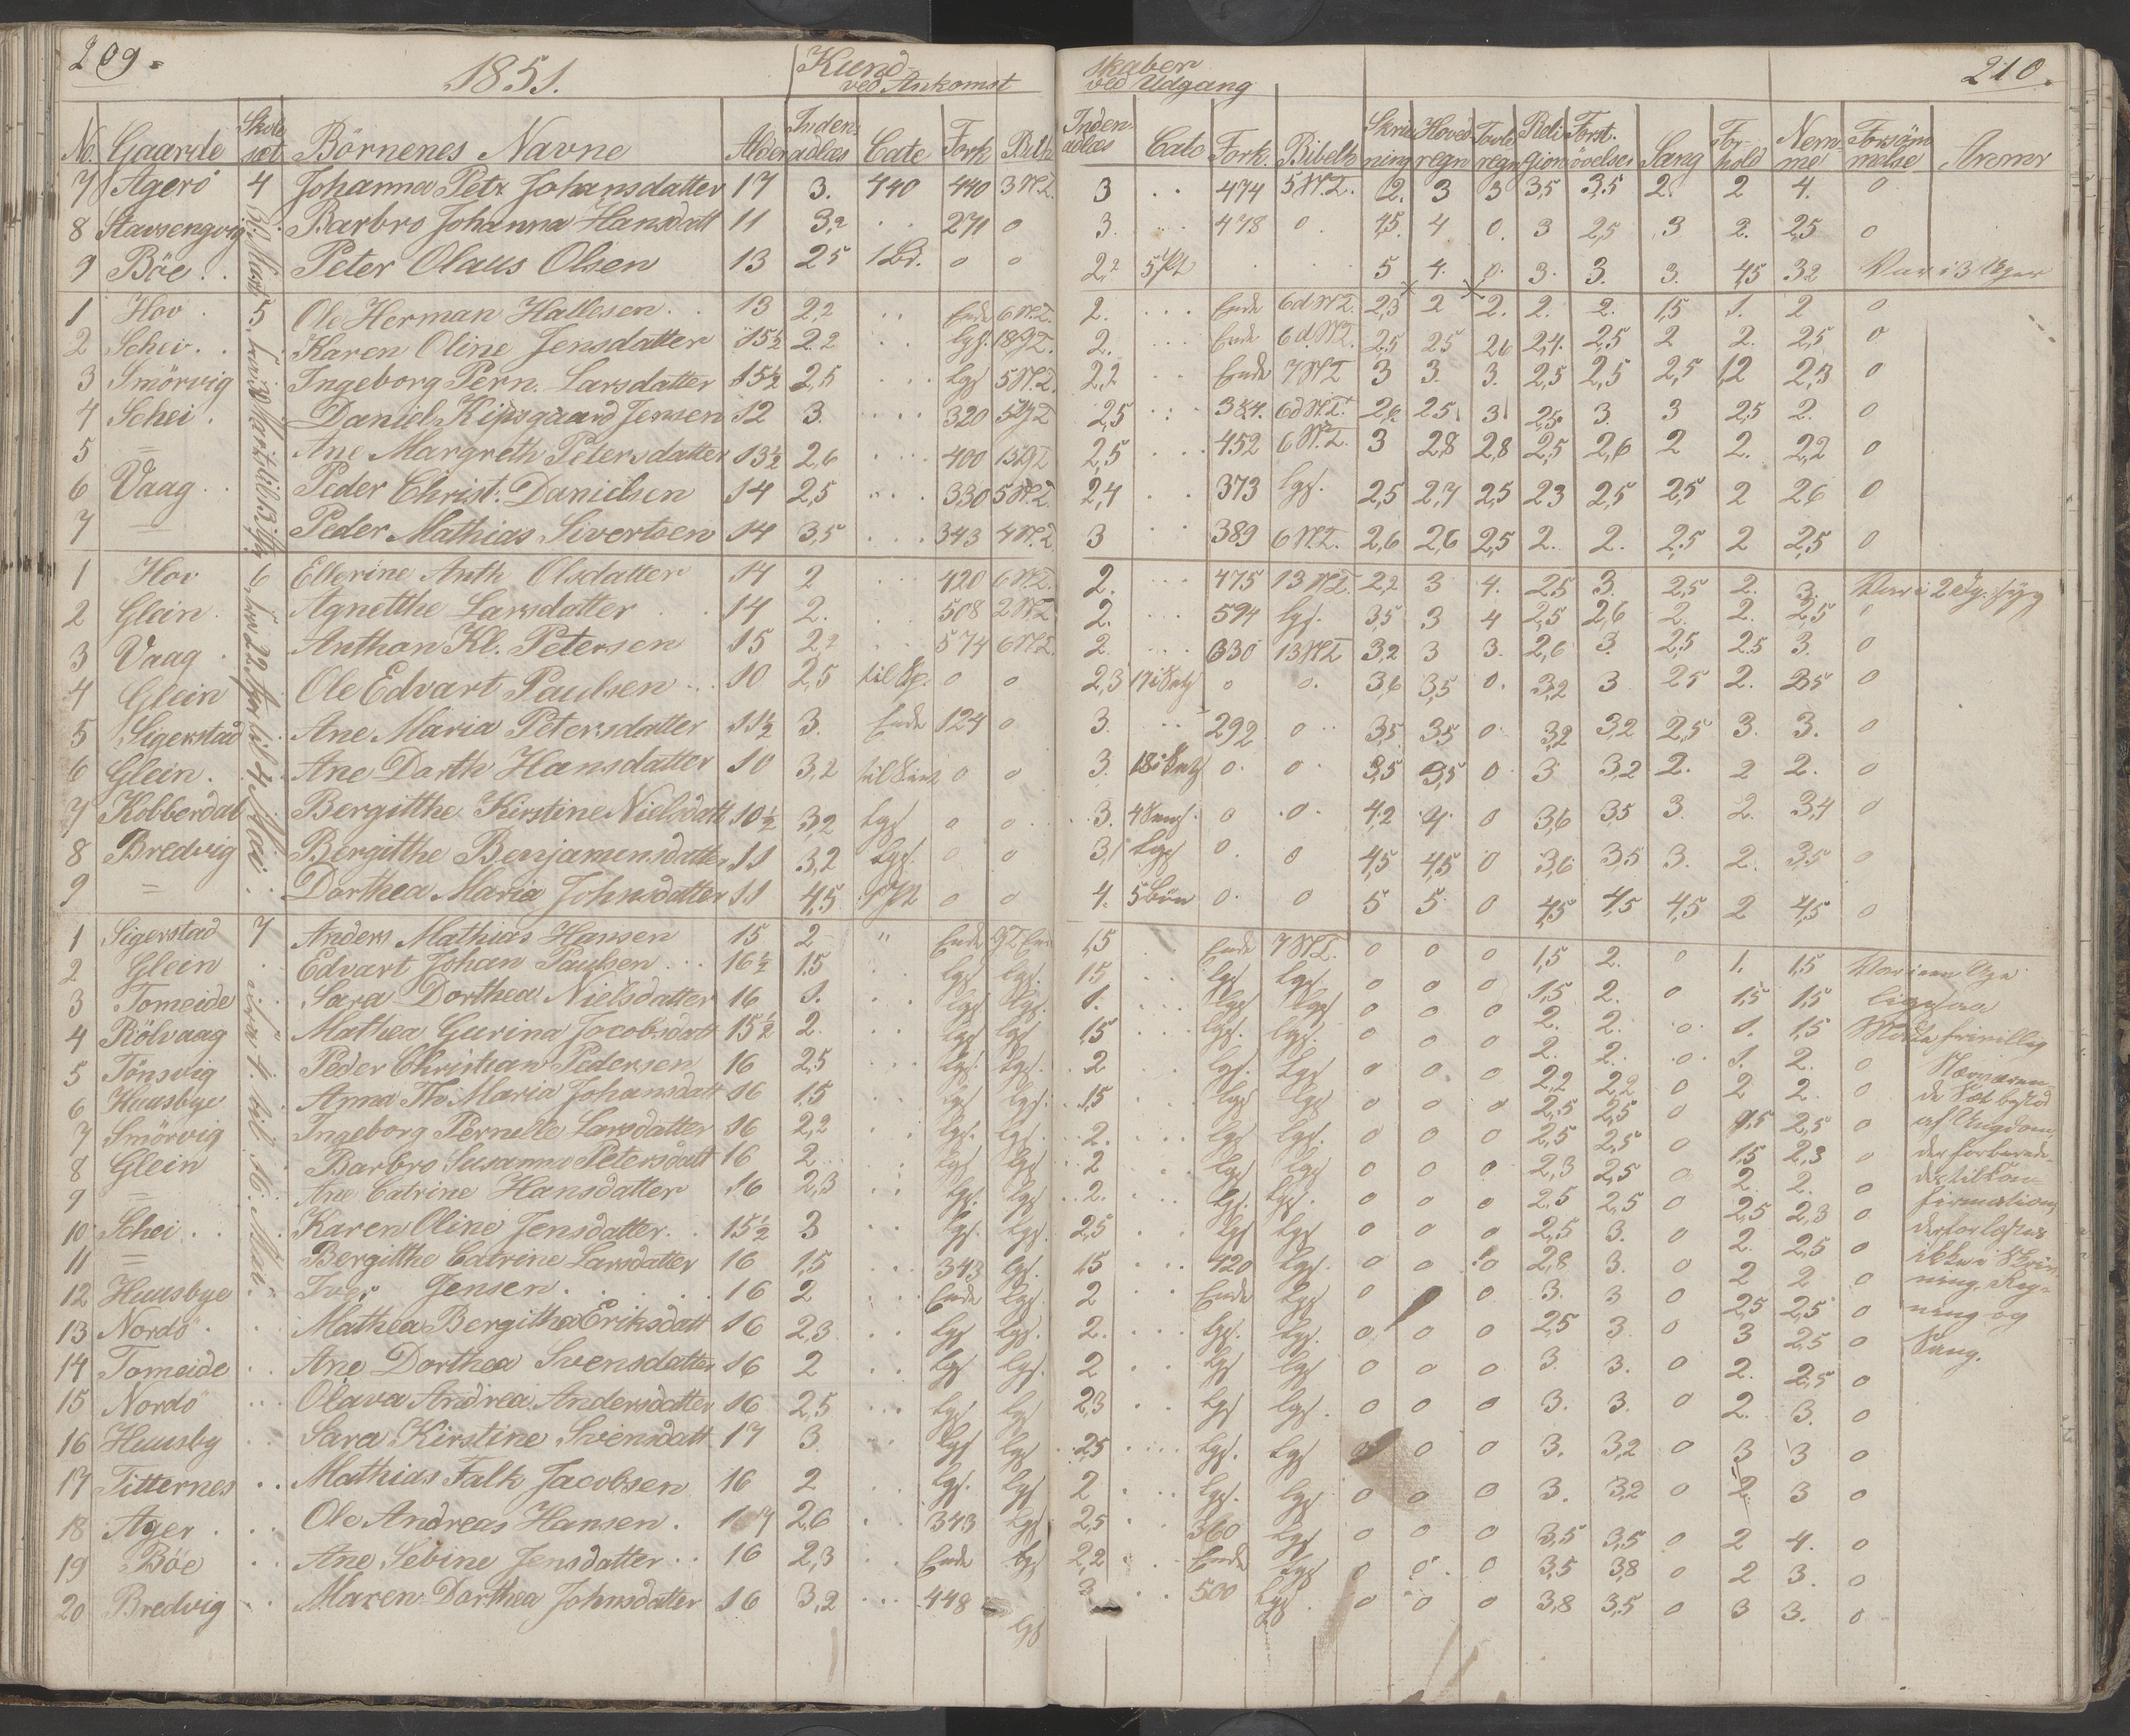 209.
1851.
Kund-
ved Ankomst
No. Gaarde Skole sæt Börnenes Navne Alder Inden- adlæs Cate Fork Bibl
7 Agerö 4 Johanna Petr Johansdatter 17 3. 440 440 3 N.T.
8 Stavsengvig Barbro Johanna Hansdatt 11 3,2 . 271 0
9 Böe . . Peter Olaus Olsen 13 25 1 Bd. 0 0
1 Hov . 5 Ole Herman Hallesen . . 13 2,2 . . Ende 6 N.T.
2 Schei . . Karen Oline Jensdatter 15½ 2.2 . . lgs.
3 Smörvig Ingeborg Pern. Larsdatter 15½ 2,5 . . . lgs 5 N.T.
4 Schei . Daniel Kipsgaard Jensen 12 3. . . . 320
5 = Ane Margreth Petersdatter 13½ 2,6 . . . 400
6 Vaag . . Peder Christ. Danielsen 14 2,5 . . . 330 5 N.T.
7 — Peder Mathias Sivertsen 14 3,5 . . . 343 4 N.T.
1 Hov 6 Ellerine Anth Olsdatter 14 2 . . . 420 6 N.T.
2 Glein . Agnetthe Larsdatter . . 14 2. . . 508 2 N.T.
3 Vaag . Anthon Kl. Petersen 15 22 . . 574 6 N.T.
4 Glein Ole Edvart Paulsen . . . 10 2,5 0 0
5 Sigerstad Ane Maria Petersdatter 11½ 3. Ende 124 0
6 Glein . Ane Dorth Hansdatter 10 3,2 0 0
7 Kobberdal Bergitthe Kirstine Nielsdatt 10½ 3,2 lgs 0 0
8 Bredvig Bergitthe Benjamensdatter 11 3,2 lgs. 0 0
9 = Dorthea Maria Johnsdatter 11 4,5 0 0
1 Sigerstad 7 Anders Mathias Hansen 15 2 " Ende
2 Glein . Edvart Johan Paulsen . . . 16½ 1.5 . . lgs lgs.
3 Tomeide Sara Dorthea Nielsdatter 16 1. . . lgs lgs.
4 Rölvaag Mathea Gurina Jacobsdatt 15½ 2. . . lgs lgs
5 Tönsvig Peder Christian Pedersen 16 2,5 . . . lgs. lgs.
6 Huusbye Anna Th. Maria Johansdatt 16 1.5 . . lgs lgs.
7 Smörvig Ingeborg Pernelle Larsdatter 16 2,2 . . lgs. lgs.
8 Glein Barbro Susanna Petersdatt 16 2 . . . lgs lgs
9 = Ane Catrine Hansdatter 16 2,3 . . lgs. lgs.
10 Schei . . . Karen Oline Jensdatter . . 15½ 3 . . lgs. lgs.
11 = Bergitthe Catrine Larsdatter 16 1,5 . . . 343 lgs.
12 Huusbye . . Jensen . . . . 16 2 . . . Ende lgs.
13 Nordö . . Mathea Bergitha Eriksdatt 16 2,3 . . lgs lgs.
14 Tomeide . . Ane Dorthea Svensdatter 16 2 . . lgs lgs.
15 Nordö . . Olava Andrea Andersdatter 16 2,5 . . . lgs lgs
16 Huusby . . Sara Kirstine Svensdatt 17 3. . . lgs lgs
17 Titternes . . Mathias Falk Jacobsen 16 2 . . lgs. lgs
18 Ager . . . Ole Andreas Hansen . 2,6 . . 343 lgs
19 Böe . . Ane Sebine Jensdatter . . 16 2,3 . . Ende lgs
20 Bredvig . . Maren Dorthea Johnsdatter 16 3,2 . . . 448 lgs
210.
skaber
ved Udgang
Inden- adlæs Cate Fork. Bibelh Skriv- ning Hoved- regn Tavle regn Reli- gion Forst. övelser Sang For- hold Nem- me Forsöm- melse Anmr
3 . . 474 5 N.T. 2. 3 3 3,5 3,5 2. 2 4. 0
3. . . . 478 0 . 4,5. 4 0. 3 2,5 3 2. 2,5 0
2,2 5 Pt . . . 5 4. 0. 3. 3. 3. 4,5 3.2 Var i 3 Uger
2. . . . Ende 6 d N.T. 2,3 2 2. 2. 2. 1,5 1. 2 0
2. . . . Ende 6 d. N.T. 2.5 2.5 2.6 2,4. 2,5 2 2. 2,5 0
2,2 . . Ende 7 N.T 3 3. 3. 2,5 2,5 2,5 1,2 2,3 0
2,5 . . 384. 6 d N.T. 2,6 2.5 3 2,5. 3. 3 2,5 2. 0
2,5 . . . 452 6 N.T. 3 2.8 2,8 2,5 2,6 2 2. 2,2 0
2,4 . . 373 lgs. 2,5 2,7 2,5 2.3 2,5 2,5 2 2.6 0
3 . . 389 6 N.T. 2,6 2,6 2,5 2. 2. 2,5 2 2,5 0
2. . . . 475 13 N.T. 2,2 3 4. 2,5 3. 2,5 2. 3. Var i 2 Ug. syg
2. . . . 594 lgs. 3,5 3 4 2,5 2,6 2. 2. 2,5
2. . . . 630 13 N.T 3,2 3 3. 2,6 3. 2,5 2.5 3. 0
2,3 0 0. 3,6 3,5 0. 3,2 3 2,5 2. 3.5 0
3. . . 292 0 . . 3,5. 3,5 0. 3,2 3,2 2,5 3. 3. 0
3. 0. 0. 3,5 3,5 0. 3 3,2 2. 2 2. 0
3. 0 0. 4,2 4. 0 3,6 3.5 3. 2. 3,4 0
3,1 lgs 0. 0 4,5 4,5 0 3,6 3,5 3. 2. 3,5 0
4. 5 Bön 0. 0 5 5. 0 4,5 4,5 4,5 2 4,5 0
1,5 . Ende 7 N.T. 0 0 0 1,5 2. 0 1. 1,5 Var i en Uge
1.5 . . . lgs lgs. 0 0 0 1,5 2. 0 1,5 1,5 ligesaa
1. . . . lgs lgs 0 0 0 2. 2. 0. 1. 1,5 Mödte frivillig
1,5 . . . lgs. lgs. 0 0 0 2. 2. 0. 1. 2. 0
2 . . lgs. lgs 0 0 0 2,2 2,2 0 2 2. 0
1,5 . . . lgs lgs 0 0 0 2,5 2,5 0 2,5 0
2. . . . lgs lgs. 0 0 0 2,5 2,5 0 1,5 2,3 0
2 . . . lgs lgs 0 0 0 2,3 2,5 0 2. 2. 0
2. . . . lgs. lgs. 0 0 0 2.5 2,5 0 2,5 2,3 0
2,5 . . lgs lgs 0 0 0 2,5 3. 0 2. 2,5 0
1,5 . . 420 lgs. 0 0 0 2,8 3. 0 2 2 0
2 . . Ende lgs 0 0 0 3. 3 0 2,5 2,5 0
2. . . . lgs. lgs. 0 0 0 2,5 3. 0 3 2,5 0
2 . . . lgs lgs 0 0 0 3. 3. 0 2. 2,5 0
2,3 . . lgs lgs. 0 0 0 3. 3. 0 2. 3. 0
2,5 . . . lgs. lgs 0 0 0 3. 3,2 0 3 3 0
2 . . . lgs. lgs 0 0 0 3. 3,2 0 2. 3 0
2,5 . . 360 lgs 0 0 0 3,5 3,5 0 2 4. 0
2,2 . . Ende lgs 0 0. 0 3,5 3,8 0 2 3. 0
3 . . 500 lgs 0 0 0 3,8 3,5 0 3 3. 0
Nærværen-
de Sæt bestod
af Ungdom,
der forbered-
des til Con-
firmation,
derfor læstes
ikke i Skriv-
ning, Reg-
ning og
Sang.